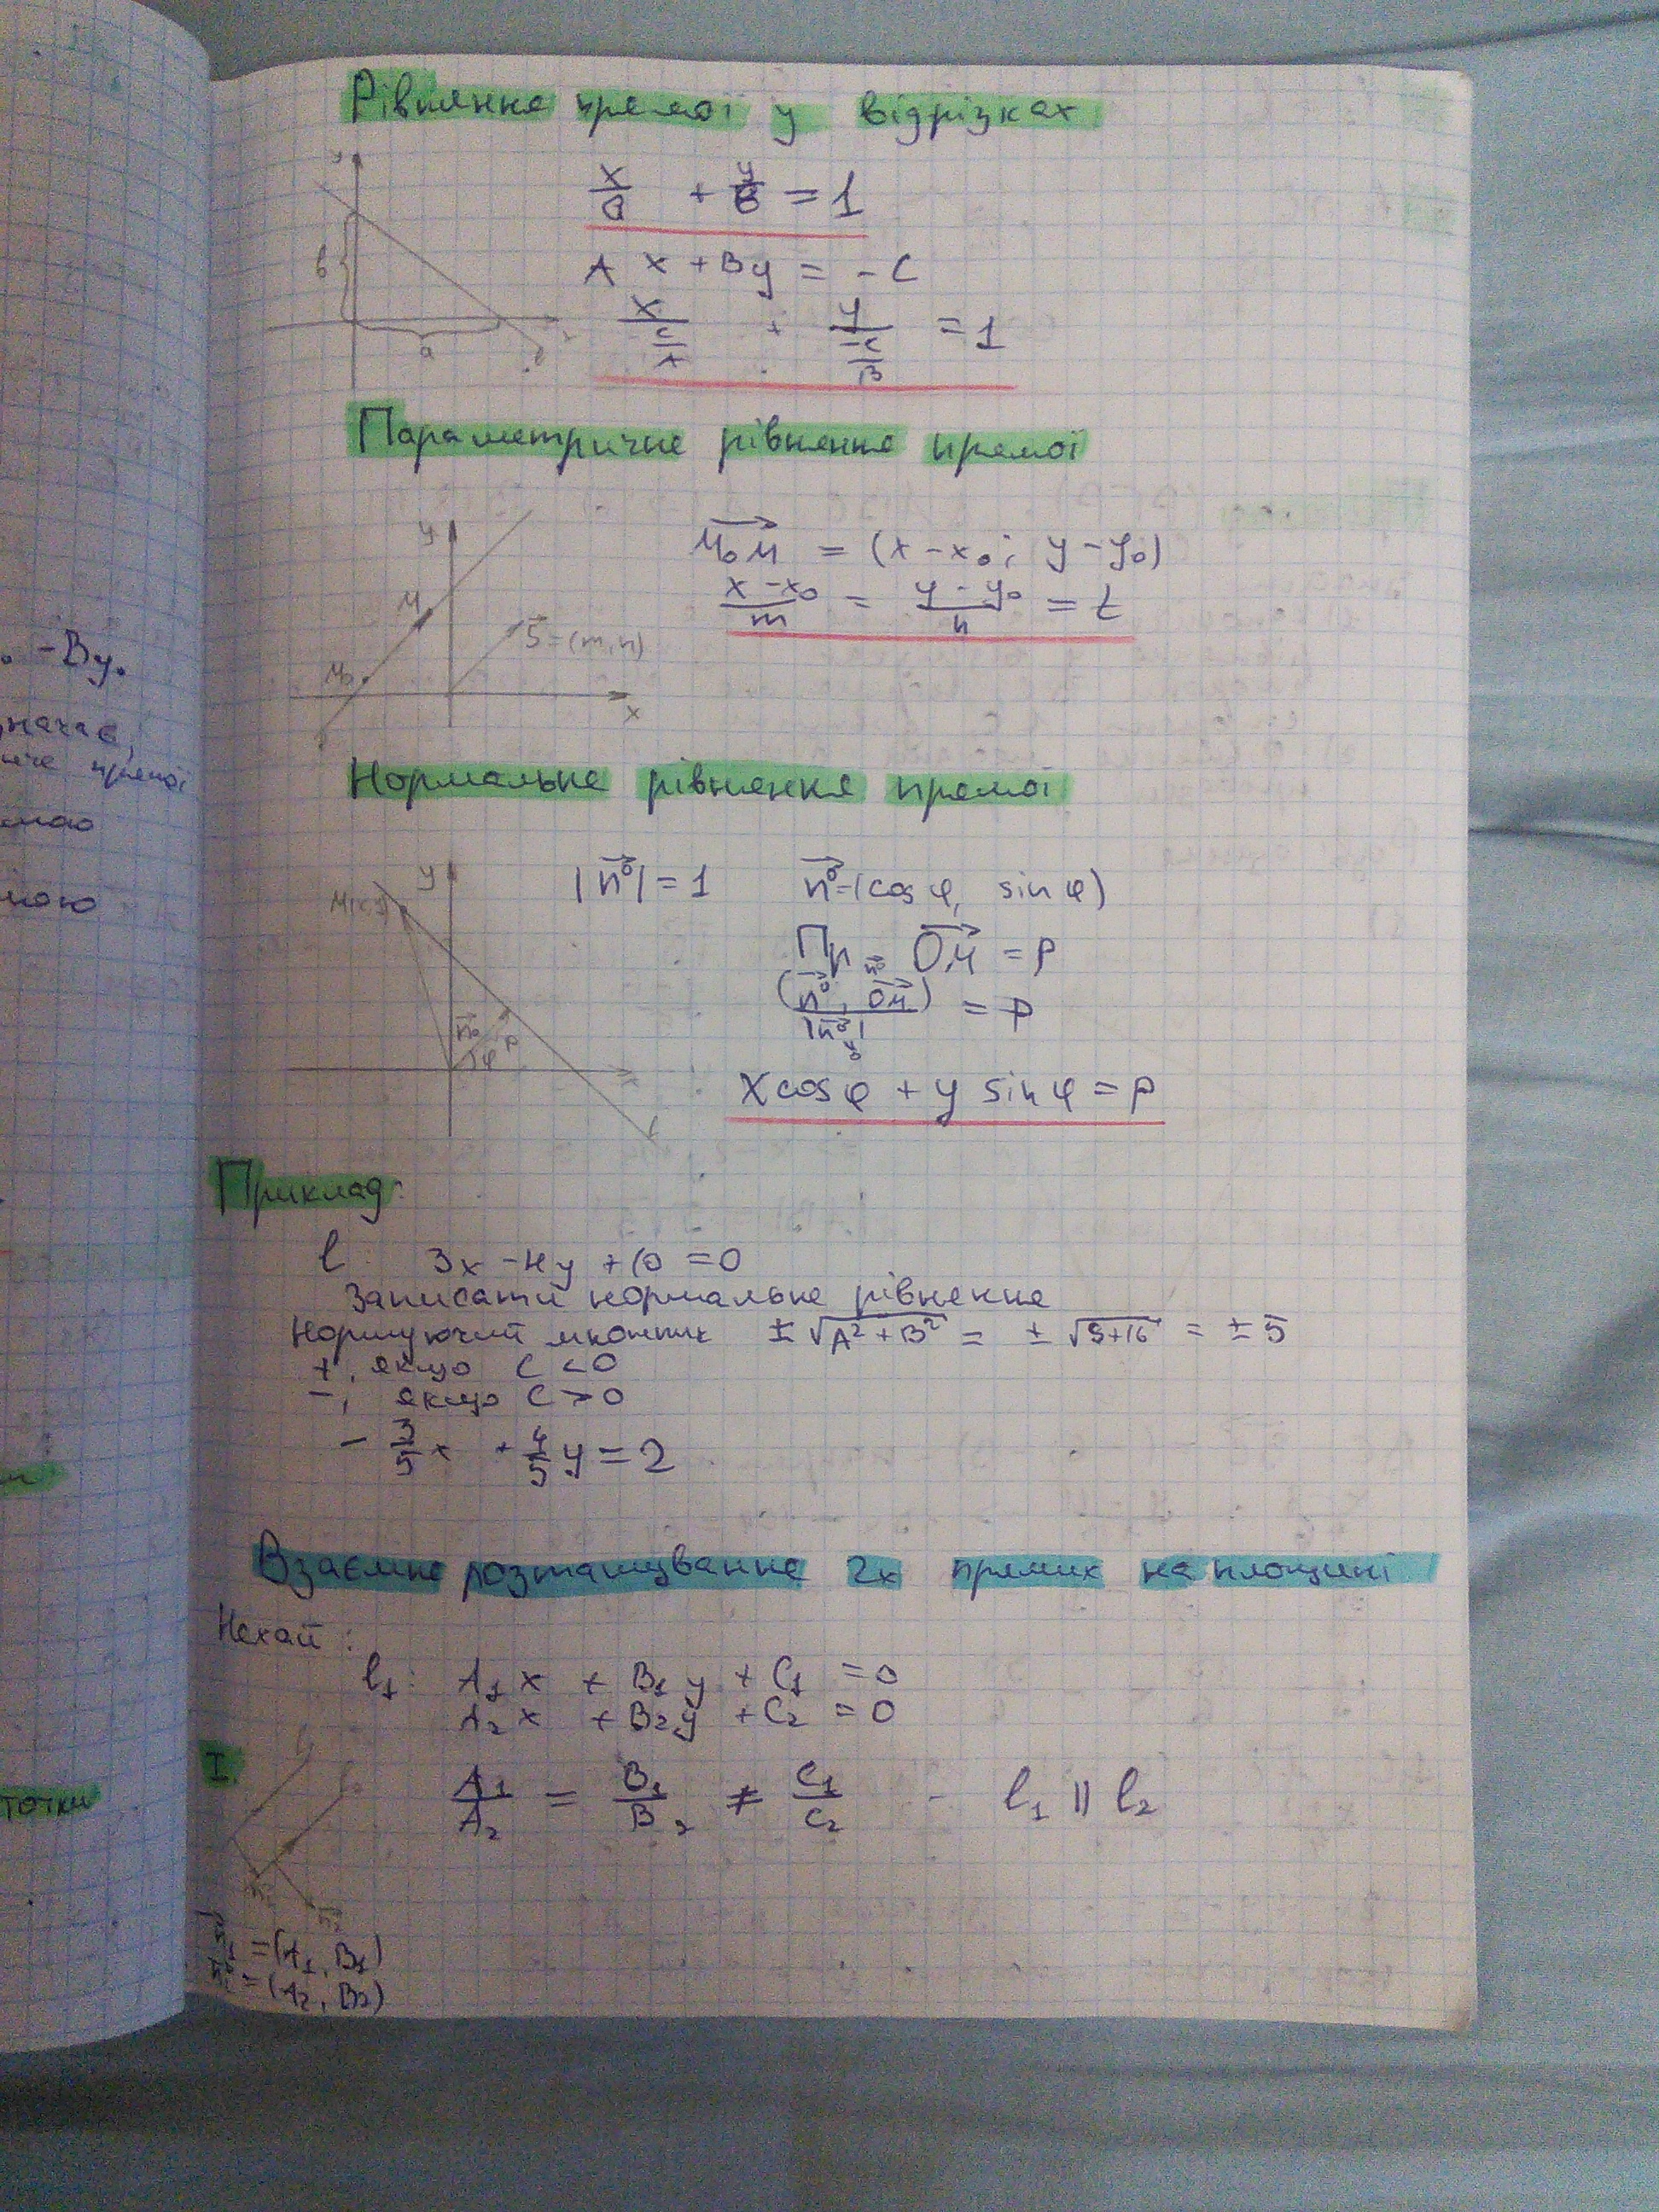 Рівняння прямої у відрізках
y
x/a + y/b = 1
b
Ax + By = -C
x/(C/A) + y/(-C/B) = 1
a
l
Параметричне рівняння прямої
y
M₀M = (x-x₀; y-y₀)
(x-x₀)/m = (y-y₀)/n = t
M
S=(m,n)
M₀
x
Нормальне рівняння прямої
y
|n⁰| = 1 n⁰=(cos φ, sin φ)
Пр n⁰ OM = P
(n⁰, OM)/|n⁰| = P
n⁰
P
φ
x cos φ + y sin φ = P
Приклад:
l: 3x - 4y + 10 = 0
Записати нормальне рівняння
Нормуючий множник ±√(A²+B²) = ±√(9+16) = ±5
+, якщо C < 0
-, якщо C > 0
- 3/5 x + 4/5 y = 2
Взаємне розташування 2х прямих на площині
Нехай:
l₁: A₁x + B₁y + C₁ = 0
A₂x + B₂y + C₂ = 0
I.
A₁/A₂ = B₁/B₂ ≠ C₁/C₂ - l₁ || l₂
n₁ = (A₁, B₁)
n₂ = (A₂, B₂)
-By₀
прямої
точки